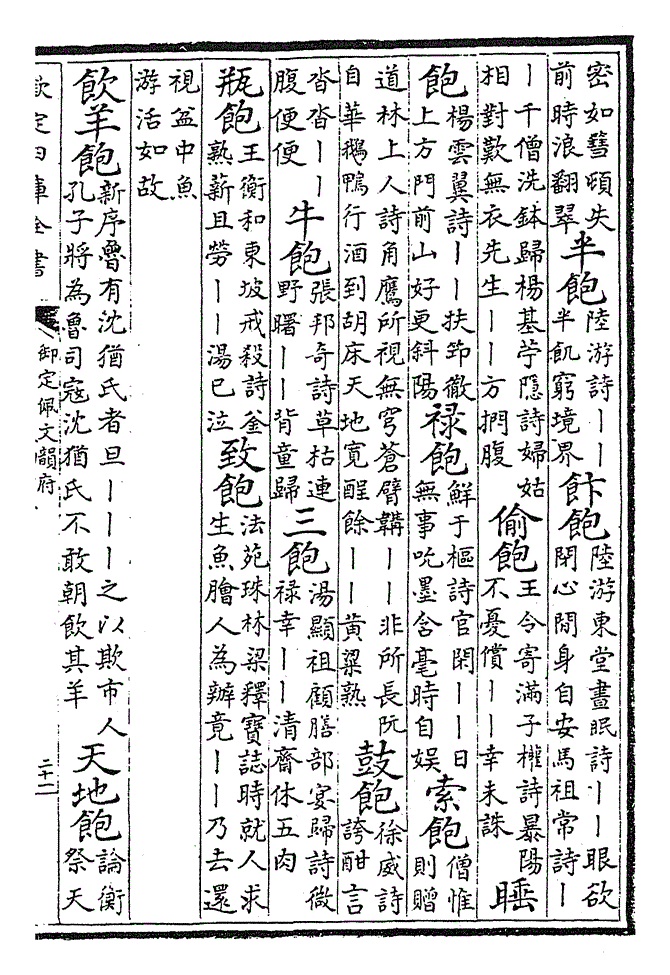 密如彗頓失前時浪翻翠 半飽 陸游詩丨丨半飢窮境界 飰飽 陸游東堂晝眠詩丨丨眼欲閉心閒身自安馬祖常詩丨
丨千僧洗鉢歸楊基苧隱詩婦姑相對歎無衣先生丨丨方捫腹 偷飽 王令寄滿子權詩暴陽不憂償丨丨幸未誅 睡
飽 楊雲翼詩丨丨扶笻徹上方門前山好更斜陽 祿飽 鮮于樞詩官閑丨丨日無事吮墨含毫時自娛 索飽 僧惟則贈
道林上人詩角鷹所視無穹蒼臂韝丨丨非所長阮自華鵝鴨行酒到胡床天地寬酲餘丨丨黃粱熟 鼓飽 徐威詩誇酣言
沓沓丨丨腹便便 牛飽 張邦奇詩草枯連野曙丨丨背童歸 三飽 湯顯祖顧膳部宴歸詩微祿幸丨丨清齋休五肉
瓶飽 王衡和東坡戒殺詩釜熟薪且勞丨丨湯已泣 致飽 法苑珠林梁釋寶誌時就人求生魚膾人為辦竟丨丨乃去還
視盆中魚游活如故
飲羊飽 新序魯有沈猶氏者旦丨丨丨之以欺市人孔子將為魯司寇沈猶氏不敢朝飲其羊 天地飽 論衡祭天
欽定四庫全書 御定佩文韻府 二十一